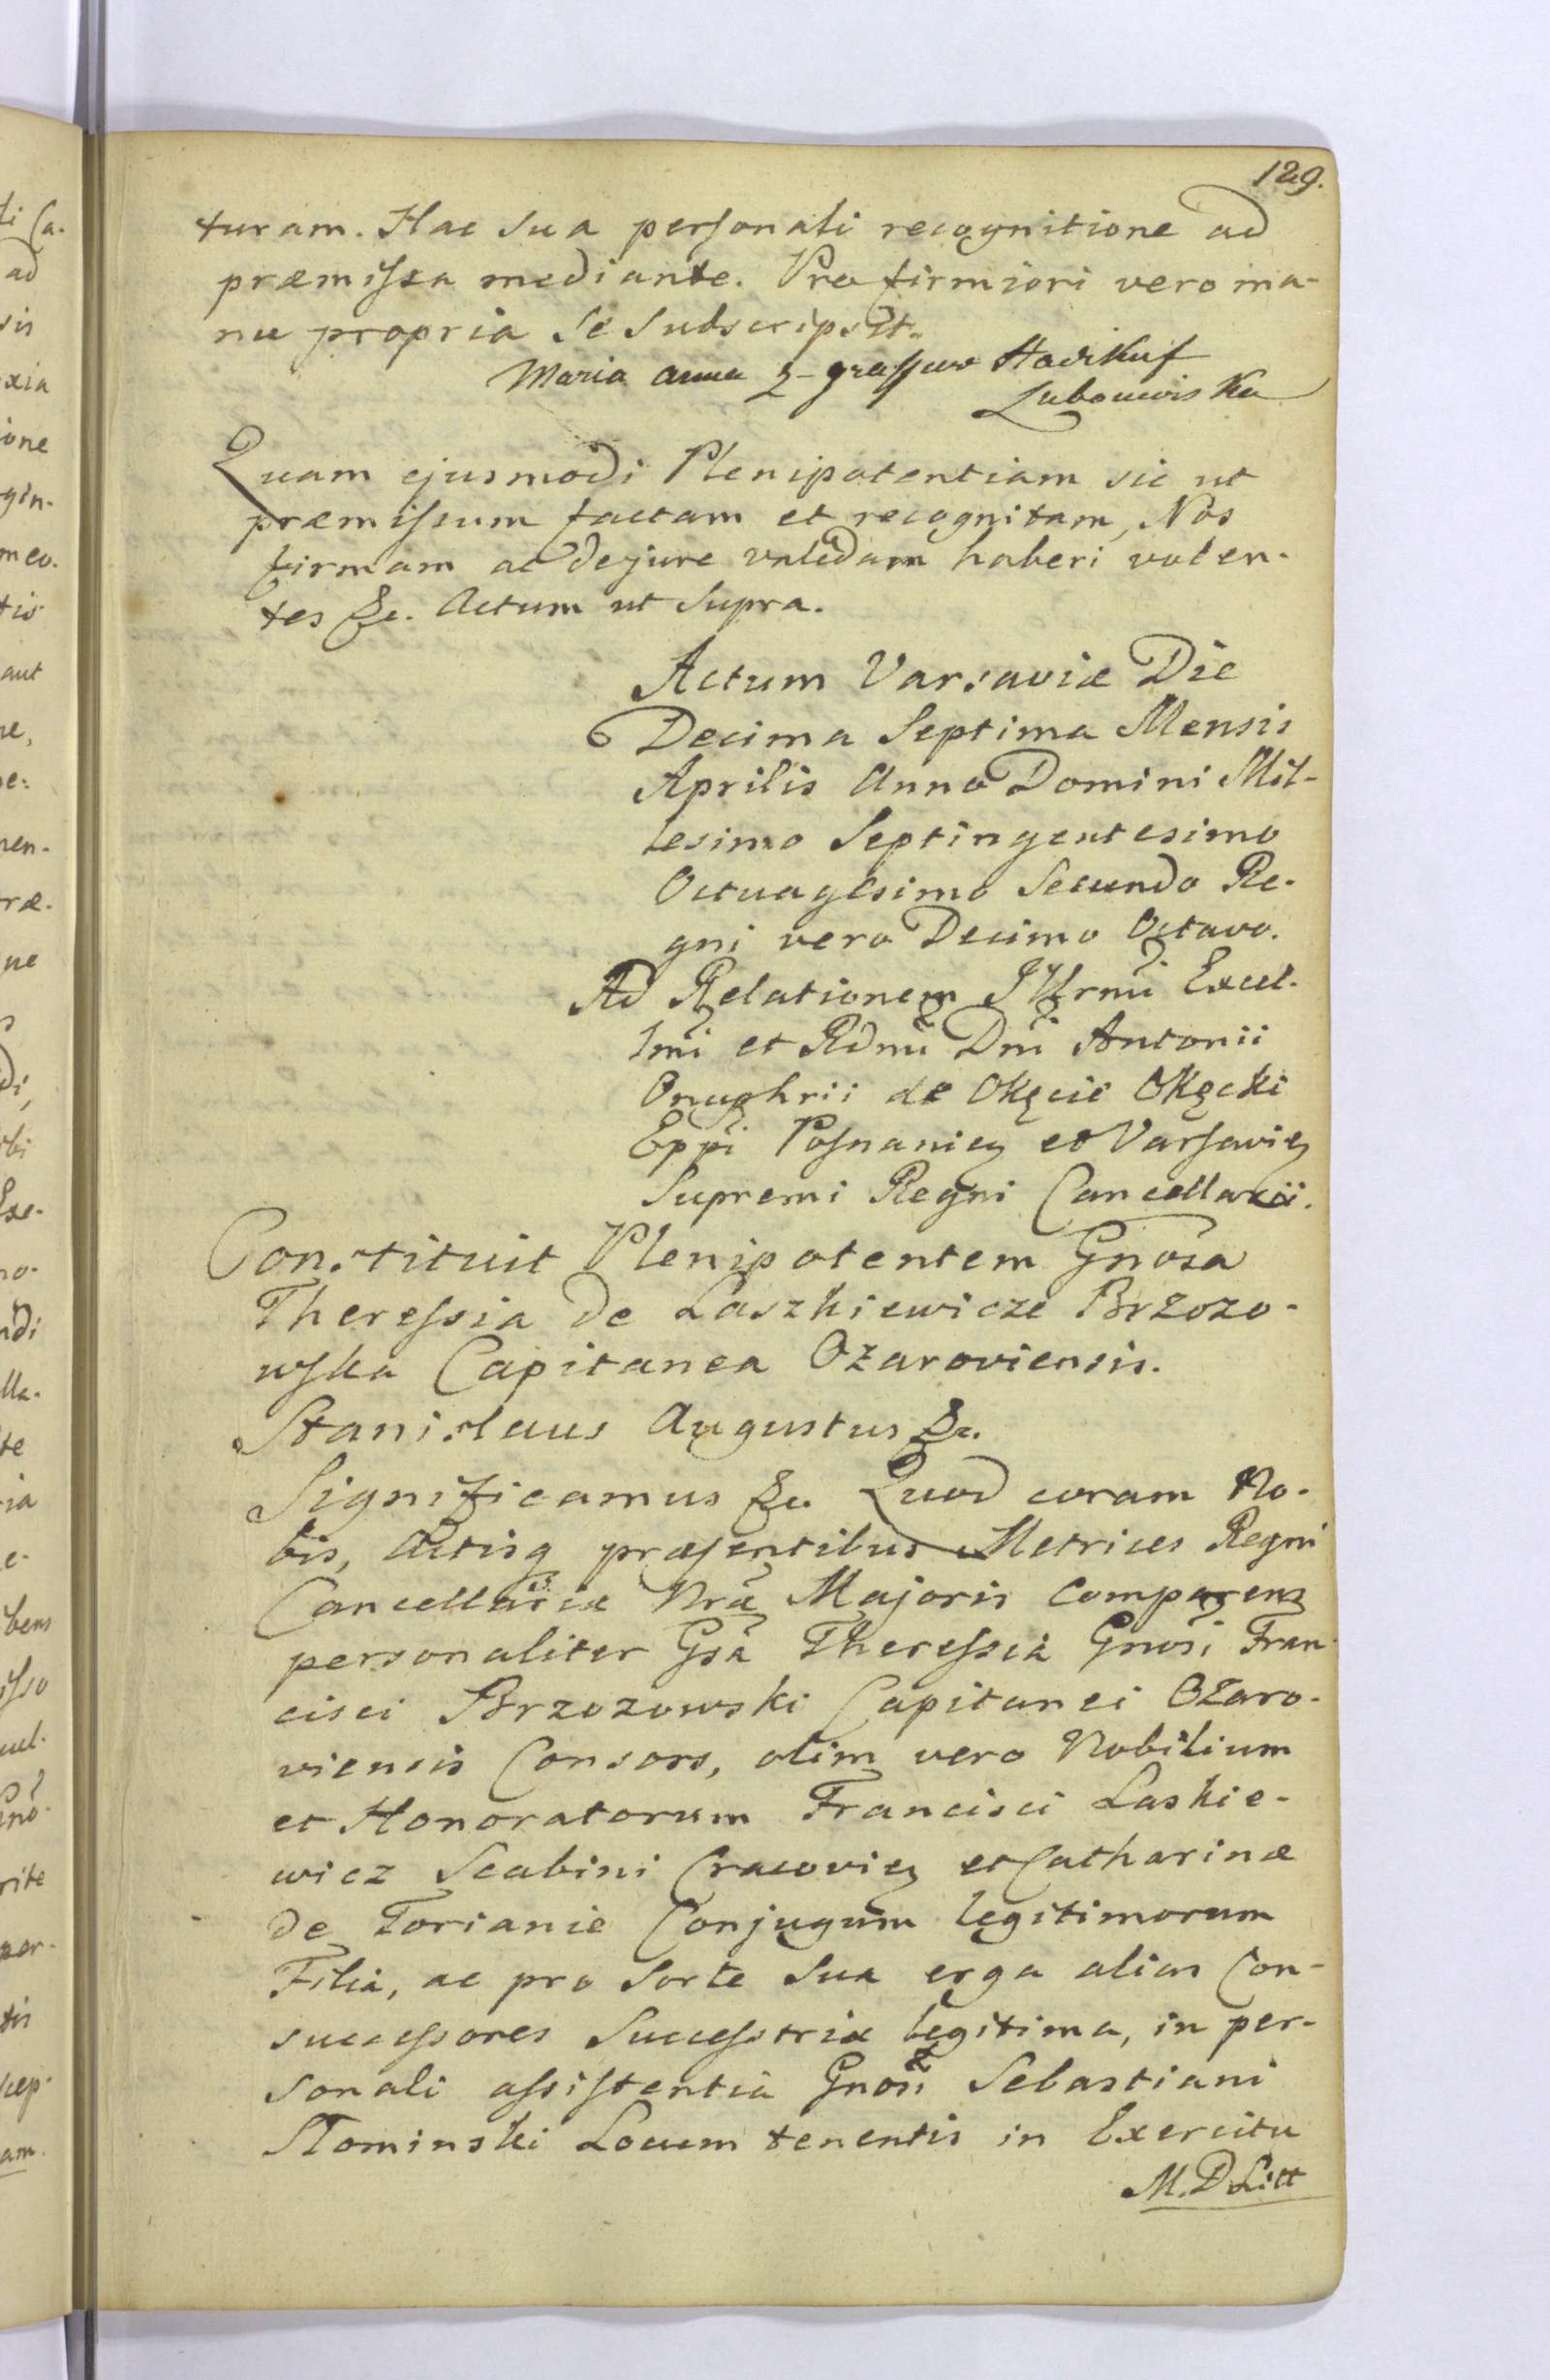 129.
turam. Hac sua personali recognitione ad
præmissa mediante. Pro firmiori vero ma-
nu propria se subscripsit.
Maria anna z Hadikuf
Lubomirska
Quam ejusmodi Plenipotentiam sic ut
præmissum factam et recognitam, Nos
firmam ac de jure validam haberi volen-
tes &c. Actum ut supra.
Actum Varsaviæ Die
Decima Septima Mensis
Aprilis Anno Domini Mil-
lesimo Septingentesimo
Octuagesimo Secundo Re-
gni vero Decimo Octavo.
Ad Relationem Illrmi Excel-
lmi et Rdmi Dni Antonii
Onuphrii de Okęcie Okęcki
Eppi Posnanien et Varsavien
Supremi Regni Cancellarii.
Constituit Plenipotentem Gnosa
Theressia de Laszkiewicze Brzozo-
wska Capitanea Ożaroviensis.
Stanislaus Augustus &c.
Significamus &c. Quod coram No-
bis, Actisq præsentibus Metrices Regni
Cancellariæ Nræ Majoris Comparens
personaliter Gsa Theressia Gnosi Fran-
cisci Brzozowski Capitanei Ożaro-
viensis Consors, olim vero Nobilium
et Honoratorum Francisci Laskie-
wicz Scabini Cracovien et Catharinæ
de Torianie Conjugum legitimorum
Filia, ac pro sorte sua erga alios Con-
successores Successtrix legitima, in per-
sonali assistentia Gnosi Sebastiani
Słominski Locum tenentis in Exercitu
M. D Litt